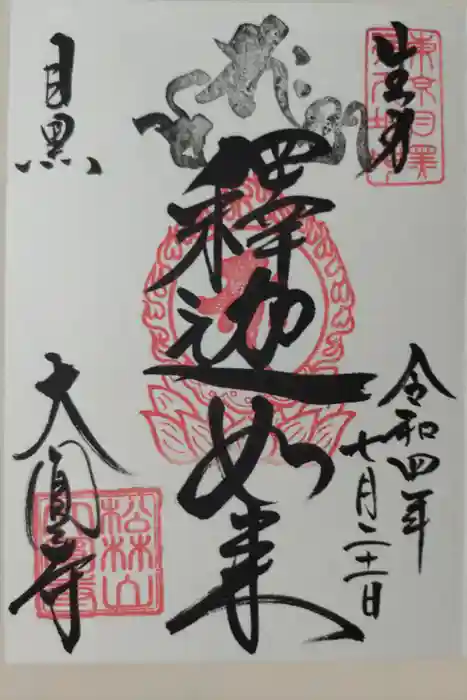 生身
東京目黒
令和四年
七月二十一日
釋迦如来
目黒
大圓寺
松林山